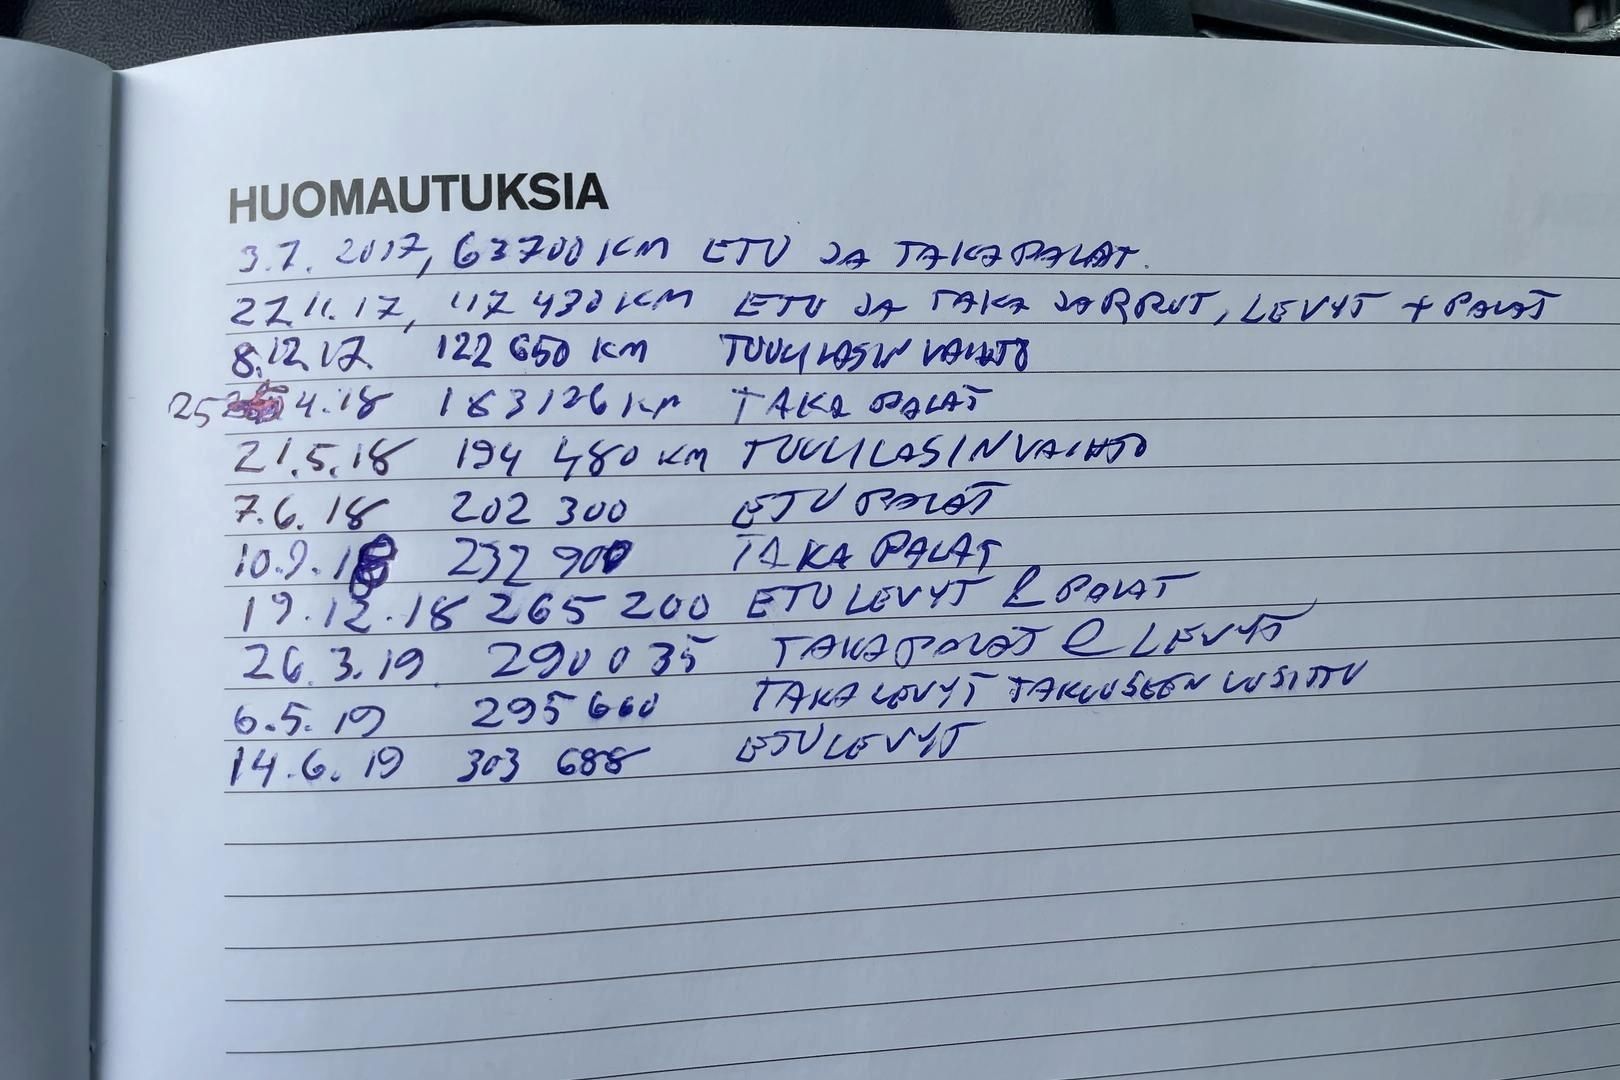 HUOMAUTUKSIA
3.7.2017, 63700 KM ETU JA TAKAPALAT.
27.11.17, 117 430 KM ETU JA TAKA JARRUT, LEVYT + PALAT
8.12.17 122 650 KM TUULILASIN VAIHTO
25 4.18 183126 KM TAKA PALAT
21.5.18 194 480 KM TUULILASIN VAIHTO
7.6.18 202 300 ETU PALAT
10.9.18 232 900 TAKA PALAT
19.12.18 265 200 ETU LEVYT & PALAT
26.3.19 290035 TAKAPALAT & LEVYT
6.5.19 295 660 TAKALEVYT TAKUUSEEN UUSITTU
14.6.19 303 688 ETU LEVYT